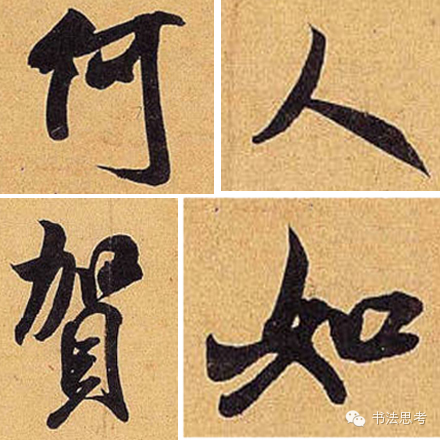 何人
賀如
书法思考